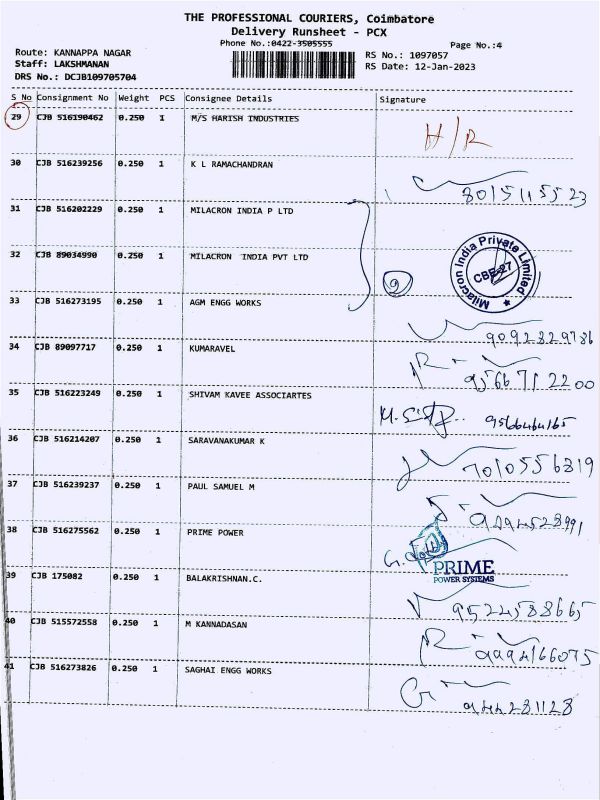 THE PROFESSIONAL COURIERS, Coimbatore
Delivery Runsheet - PCX
Phone No.:0422-3505555
Page No.:4
Route: KANNAPPA NAGAR
RS No.: 1097057
Staff: LAKSHMANAN
RS Date: 12-Jan-2023
DRS No.: DCJB109705704
S No Consignment No Weight PCS Consignee Details Signature
29 CJB 516190462 0.250 1 M/S HARISH INDUSTRIES H/R
30 CJB 516239256 0.250 1 K L RAMACHANDRAN
8015115523
31 CJB 516202229 0.250 1 MILACRON INDIA P LTD
32 CJB 89034990 0.250 1 MILACRON INDIA PVT LTD
Milacron India Private Limited
CBE-27
33 CJB 516273195 0.250 1 AGM ENGG WORKS
9092829786
34 CJB 89097717 0.250 1 KUMARAVEL
9566712200
35 CJB 516223249 0.250 1 SHIVAM KAVEE ASSOCIARTES
36 CJB 516214207 0.250 1 SARAVANAKUMAR K
7010556819
37 CJB 516239237 0.250 1 PAUL SAMUEL M
38 CJB 516275562 0.250 1 PRIME POWER
PRIME
POWER SYSTEMS
39 CJB 175082 0.250 1 BALAKRISHNAN.C.
9524588665
40 CJB 515572558 0.250 1 M KANNADASAN
9994166075
41 CJB 516273826 0.250 1 SAGHAI ENGG WORKS